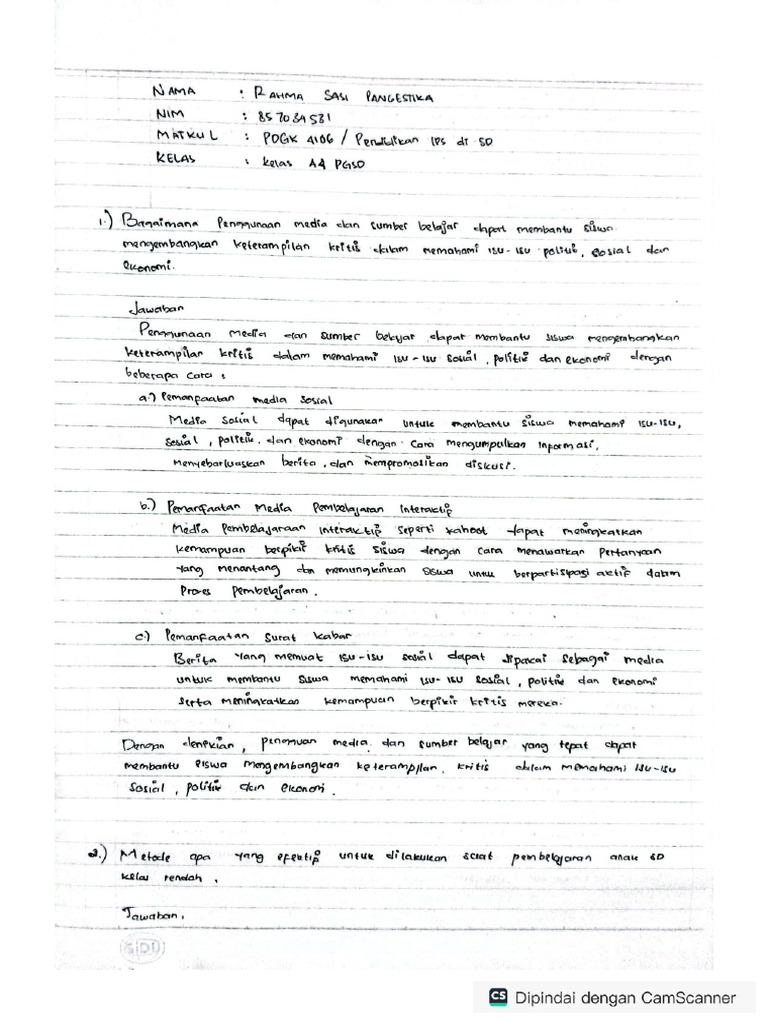 NAMA : RAHMA SASI PANGESTIKA
NIM : 857034531
MATKUL : PDGK 4106 / Pendidikan IPS di SD
KELAS : kelas A4 PGSD
1.) Bagaimana Penggunaan media dan sumber belajar dapat membantu siswa
mengembangkan keterampilan kritis dalam memahami isu-isu politik, sosial dan
ekonomi.
Jawaban
Penggunaan media dan sumber belajar dapat membantu siswa mengembangkan
keterampilan kritis dalam memahami isu-isu sosial, politik dan ekonomi dengan
beberapa cara :
a.) Pemanpaatan media sosial
Media sosial dapat digunakan untuk membantu siswa memahami isu-isu,
sosial, politik, dan ekonomi dengan cara mengumpulkan informasi,
menyebarluaskan berita, dan mempromosikan diskusi.
b.) Pemanfaatan Media Pembelajaran Interaktif
Media Pembelajaraan interaktif seperti kahoot dapat meningkatkan
kemampuan berpikir kritis siswa dengan cara menawarkan Pertanyaan
yang menantang dan memungkinkan siswa untuk berpartisipasi aktif dalam
Proses Pembelajaran.
c.) Pemanfaatan Surat kabar
Berita yang memuat isu-isu sosial dapat dipakai sebagai media
untuk membantu siswa memahami isu-isu sosial, politik dan ekonomi
serta meningkatkan kemampuan berpikir kritis mereka.
Dengan demikian, penggunaan media dan sumber belajar yang tepat dapat
membantu siswa mengembangkan keterampilan kritis dalam memahami isu-isu
sosial, politik dan ekonomi.
2.) Metode apa yang efektif untuk dilakukan saat pembelajaran anak SD
kelas rendah.
Jawaban,
SIDU
CS Dipindai dengan CamScanner